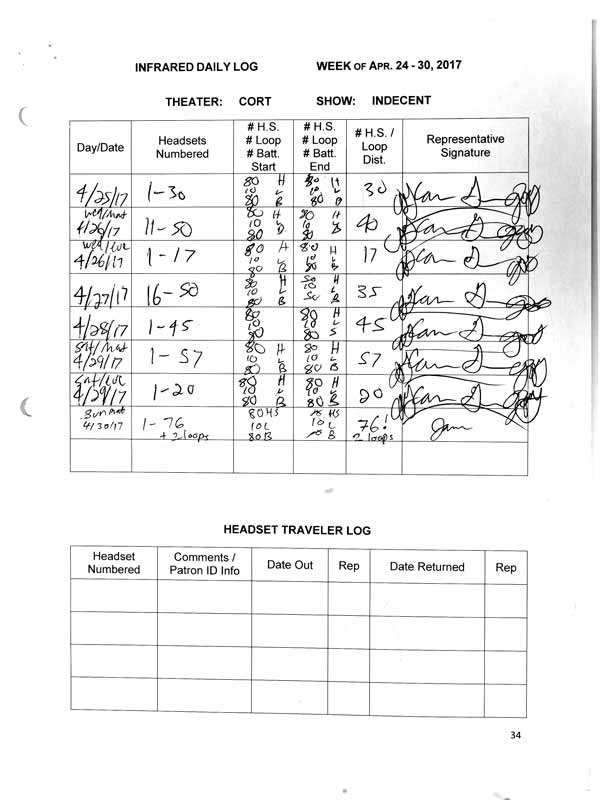 INFRARED DAILY LOG WEEK OF APR. 24 - 30, 2017
THEATER: CORT SHOW: INDECENT
Day/Date Headsets Numbered # H.S. # Loop # Batt. Start # H.S. # Loop # Batt. End # H.S. / Loop Dist. Representative Signature
4/25/17 1-30 80 H 10 L 80 B 80 H 10 L 80 B 30
Wed/Mat 4/26/17 11-50 80 H 10 L 80 B 80 H 10 L 80 B 40
Wed/Eve 4/26/17 1-17 80 H 10 L 80 B 80 H 10 L 80 B 17
4/27/17 16-50 80 H 10 L 80 B 50 H 10 L 50 B 35
4/28/17 1-45 80 H 10 L 80 B 80 H 10 L 80 S 45
Sat/Mat 4/29/17 1-57 80 H 10 L 80 B 80 H 10 L 80 B 57
Sat/Eve 4/29/17 1-20 80 H 10 L 80 B 80 H 10 L 80 B 20
Sun mat 4/30/17 1-76 + 2 loops 80HS 10L 80B HS 10L B 76! 2 loops
HEADSET TRAVELER LOG
Headset Numbered Comments / Patron ID Info Date Out Rep Date Returned Rep
34